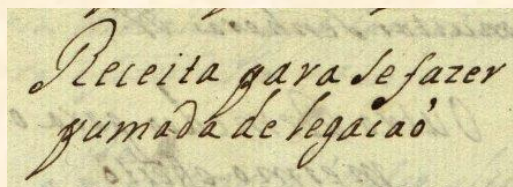 Receita para se fazer
pumada de legacaõ